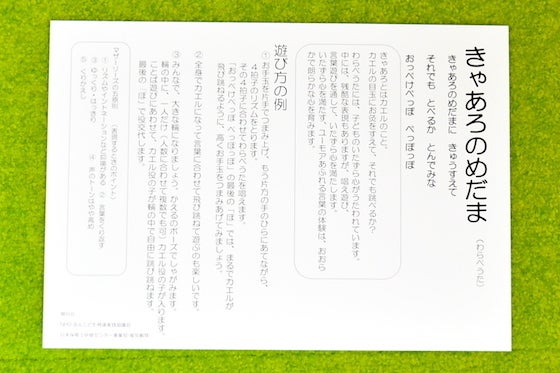 きゃあろのめだま (わらべうた)
きゃあろのめだまに きゅうすえて
それでも とべるか とんでみな
おっぺけぺっぽ ぺっぽっぽ
きゃあろとはカエルのこと、
カエルの目玉にお灸をすえて、それでも跳べるか?
わらべうたには、子どものいたずら心がうたわれています。
中には、残酷な表現もありますが、唱え遊び、
言葉遊びを通して、いたずら心を満たします。
いたずら心を満たす、ユーモアあふれる言葉の体験は、おおら
かで明らかな心を育みます。
遊び方の例
①お手玉を片手でつまみ上げ、もう片方の手のひらにあてながら、
4拍子のリズムをとります。
その4拍子に合わせてわらべうたを唱えます。
「おっぺけぺっぽ ぺっぽっぽ」の最後の「ぽ」では、まるでカエルが
飛び跳ねるように、高くお手玉をつまみあげてみましょう。
②全身でカエルになって言葉に合わせて飛び跳ねて遊ぶのも楽しいです。
③みんなで、大きな輪になりましょう。かえるのポーズでしゃがみます。
輪の中に、一人だけ(人数に合わせて複数でも可)カエル役の子が入ります。
ことば遊びにあわせて、カエル役の子が輪の中で自由に跳び跳ねます。
最後の「ぽ」で役交代します。
マザーリーズの五原則
(表現するときのポイント)
①リズムやイントネーションなど抑揚がある ②言葉をくり返す
③ゆっくり・はっきり ④声のトーンはやや高め
⑤くりかえし